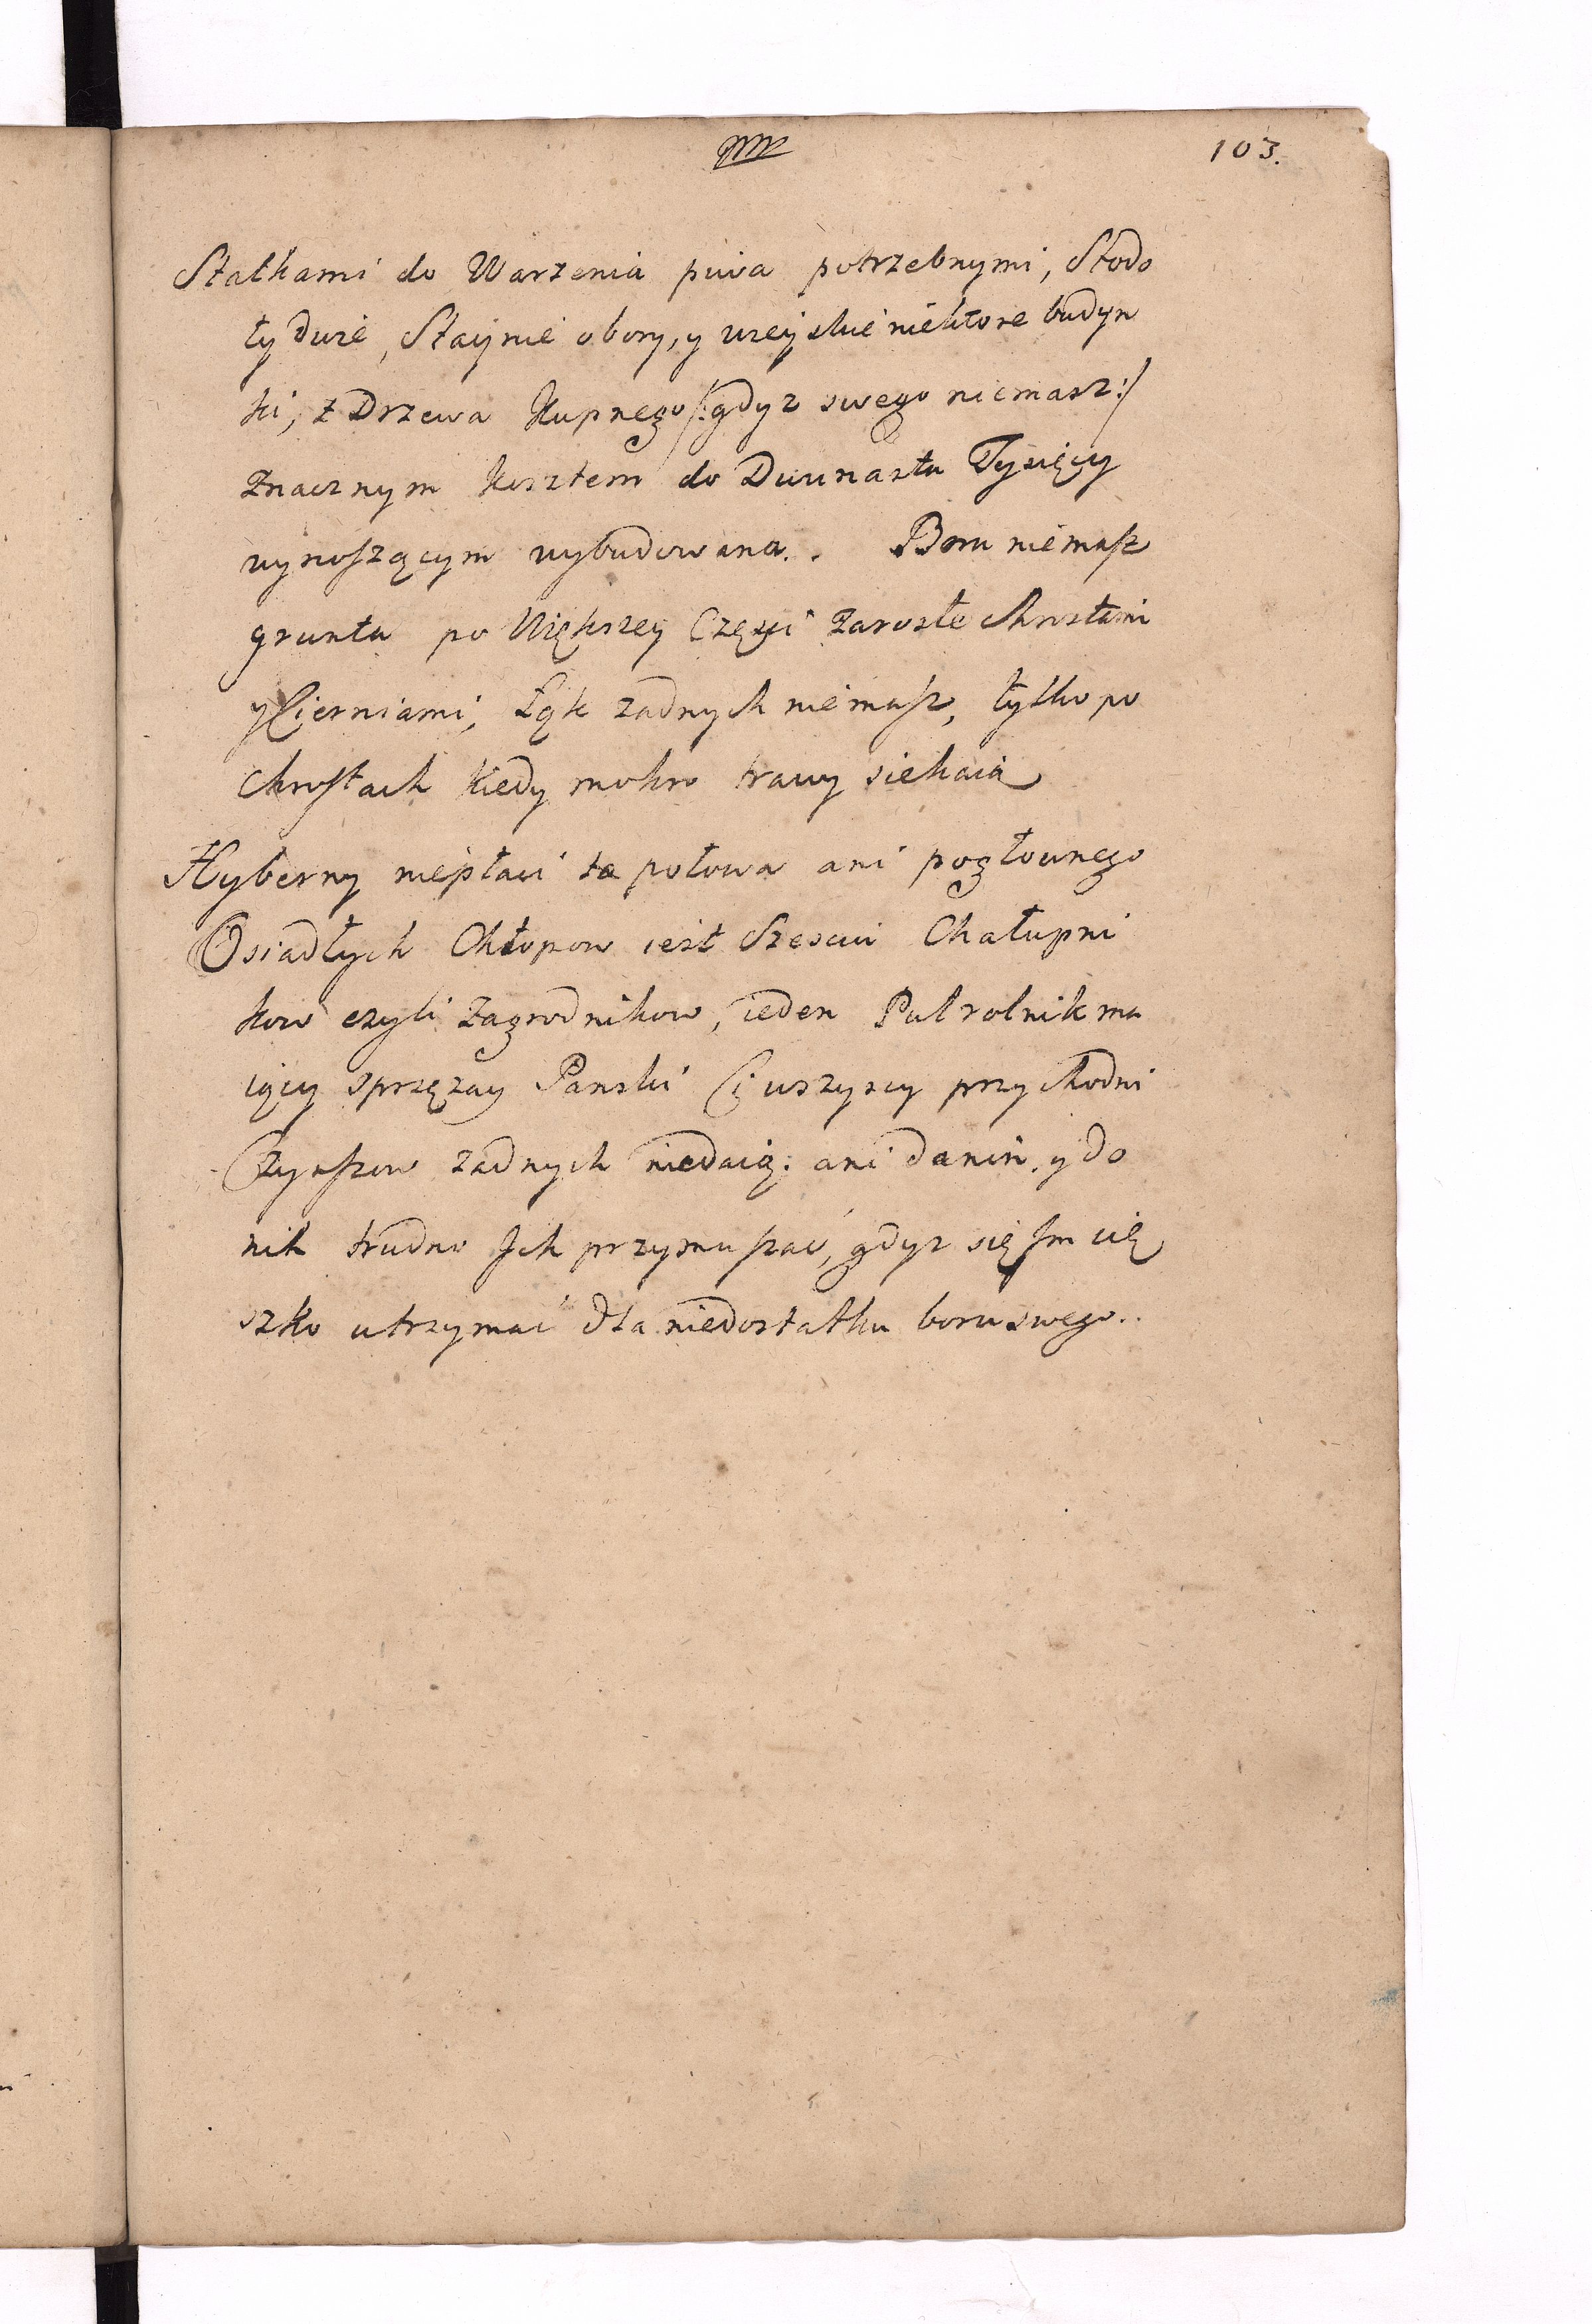 103.
Statkami do Warzenia piwa potrzebnymi, Stodo
ły duże, Stajnie obory, y wieyskie niektore budyn
ki, z Drzewa Kupnego /:gdyz swego niemasz:/
Znacznym kosztem do Dwunastu Tysięcy
wynoszącym wybudowana.. Boru niemasz
grunta po Większey Części Zarosłe Chrostami
y Cierniami, Łąk żadnych niemasz, tylko po
Chrostach kiedy mokro trawy siekaią
Hyberny niepłaci ta połowa ani pogłownego
Osiadłych Chłopow iest Szesciu Chałupni
kow czyli Zagrodnikow, ieden Pułrolnik ma
iący sprzężay Panski Ci wszyscy przychodni
Czynszow żadnych niedaią: ani danin, y do
nik trudno Ich przymuszać, gdyz się Im cię
szko utrzymać dla niedostatku boru swego..